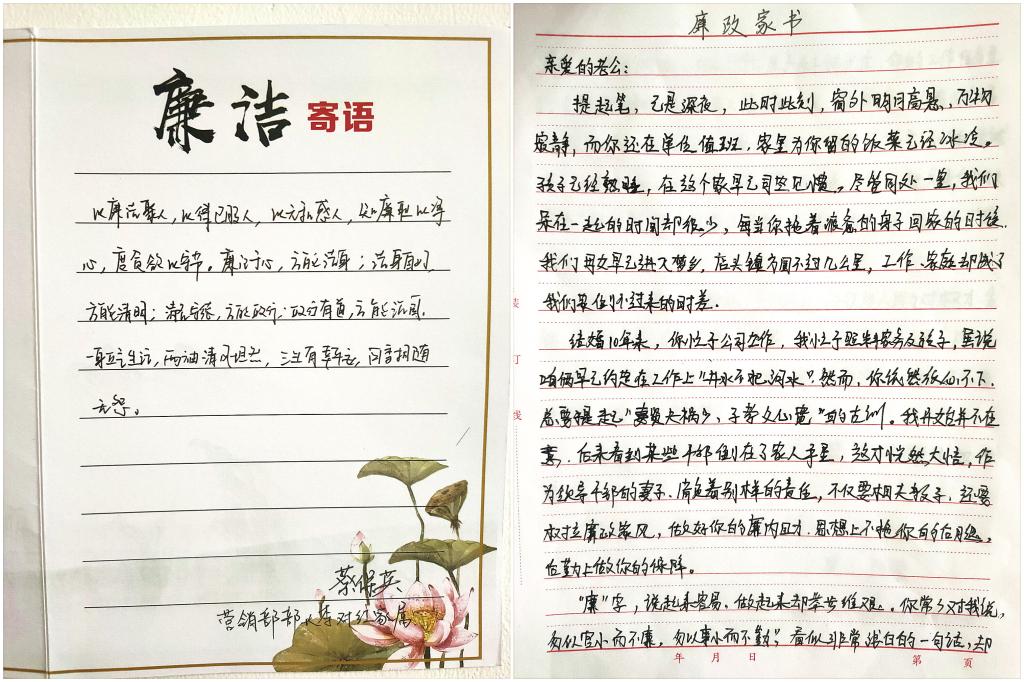 廉洁 寄语
以廉洁聚人，以得已服人，以无私感人，知廉耻以净
心，度贪欲以
心，方能洁身；洁身
方能清明；方能政行；政行有道，方能治国。
一身正立生活，两袖清可坦然，没有
无怨。
蔡保英
营销部部长李对红家属
廉政家书
亲爱的老公：
提起笔，已是深夜，此时此刻，窗外明月高悬，万物
寂静，而你还在单位值班，家里为你留的饭菜已经冰冷。
孩子已经熟睡，在这个家早已司空见惯。尽管同处一室，我们
呆在一起的时间却很少，每当你拖着疲惫的身子回家的时候，
我们母女早已进入梦乡，店头镇方圆不过几公里，工作、家庭却成了
我们最倒不过来的时差。
装
订
线
结婚10年来，你忙于公司工作，我忙于照料家务及孩子，虽说
咱俩早已约定在工作上"井水不犯河水"。然而，你依然放心不下，
总要提起"妻贤夫祸少，子孝父心宽"的古训。我开始并不在
意，后来看到某些干部倒在了家人手里，这才恍然大悟，作
为领导干部的妻子，肩负着别样的责任，不仅要相夫教子，还要
树立廉政家风，做好你的廉内助，思想上不拖你的后腿，
后勤上做你的保障。
"廉"字，说起来容易，做起来却举步维艰。你常常对我说，
勿以官小而不廉，勿以事小而不勤，看似非常浅白的一句话，却
年 月 日 第 页